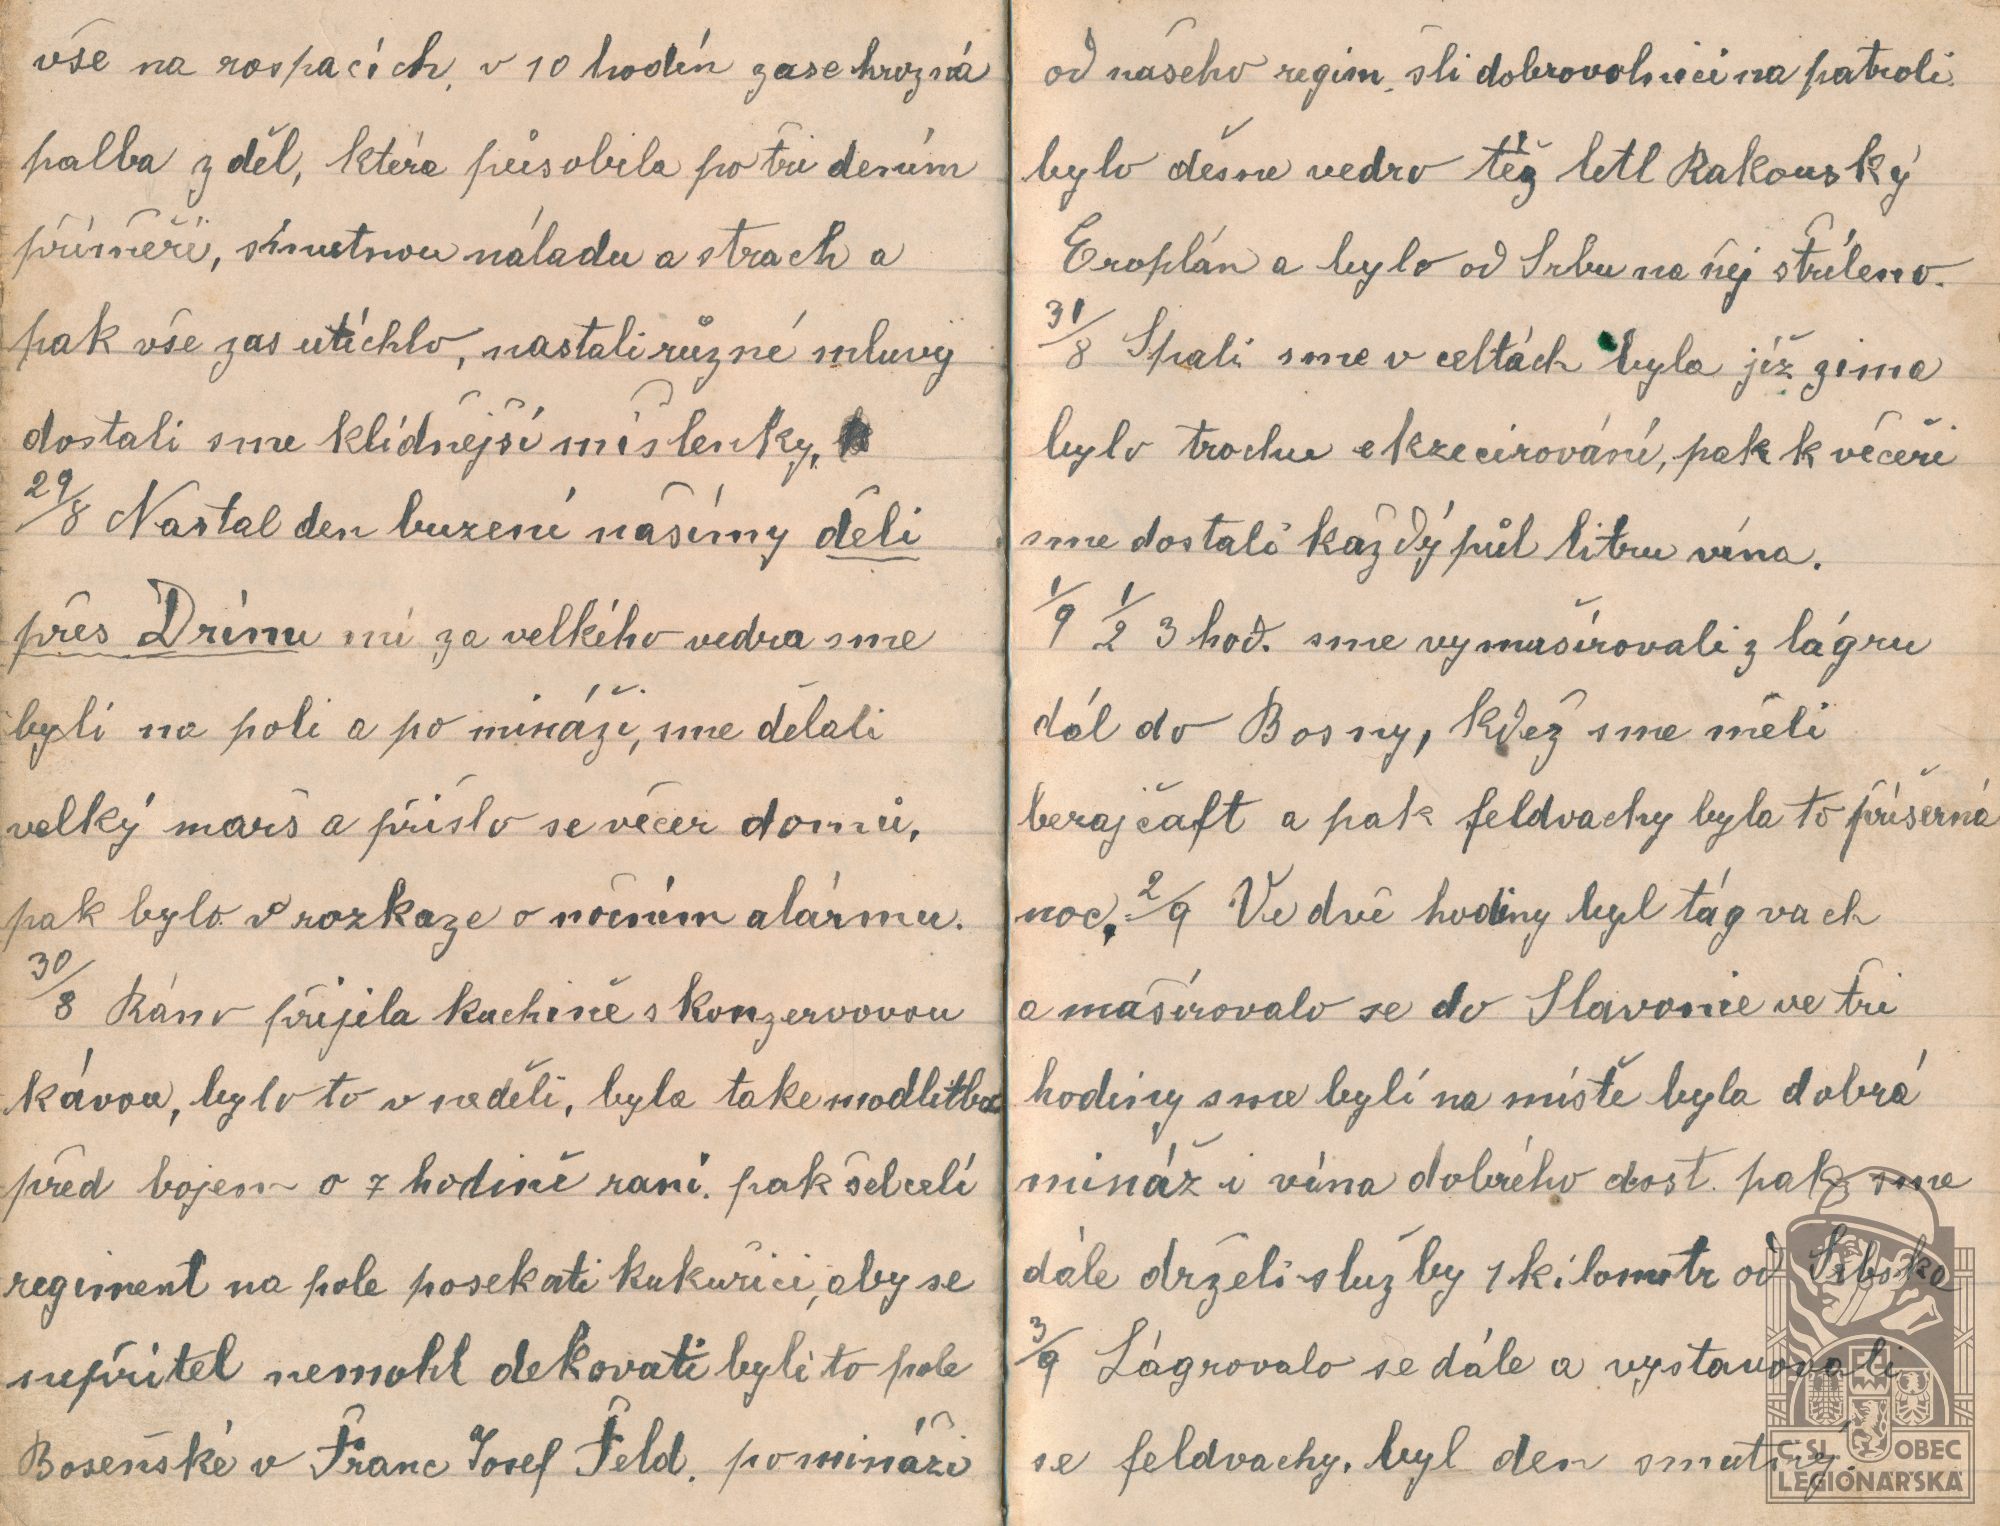 vše na rospacích, v 10 hodín zase hrozná
palba z děl, ktéra působila po tři dením
příměří, smutnou náladu a strach a
pak vše zas utichlo, nastali různé mluvy
dostali sme klidnějśí mišlenky,
29/8 Nastal den buzení našimy děli
přes Drinu mi za velkého vedra sme
byli na poli a po mináži, sme dělali
velký marš a přišlo se večer domů,
pak bylo v rozkaze o nočním alármu.
30/8 Ráno přijila kuchině s konzervovou
kávou, bylo to v neděli, byla take modlitba
před bojem o 7 hodině raní. pak šel celí
regiment na pole posekati kukuřici, aby se
nepřítel nemohl dekovati byli to pole
Bosenské v Franc Josef Feld. po mináži
od našeho regim. šli dobrovolnici na patroli.
bylo děsne vedro též letl Rakouský
Eroplán a bylo od Srbu na něj stříleno.
31/8 Spali sme v celtách byla již zima
bylo trochu ekzecirování, pak k večeři
sme dostali každý půl litru vína.
1/9 1/2 3 hod. sme vymaširovali z lágru
dál do Bosny, kdež sme měli
berajčaft a pak feldvachy byla to příšerná
noc. 2/9 Ve dvě hodiny byl tágvach
a maširovalo se do Slavonie ve tři
hodiny sme byli na místě byla dobrá
mináž i vína dobrého dost. pak sme
dále drželi služby 1 kilometr od Srbska
3/9 Lágrovalo se dále a vystavovali
se feldvachy. byl den smutný.
Č.SL. OBEC
LEGIONÁŘSKÁ